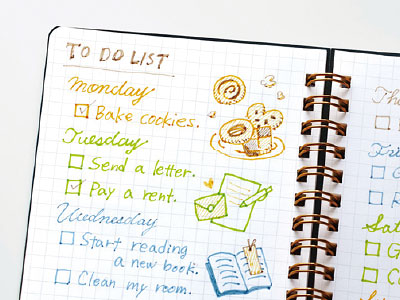 TO DO LIST
Monday
Bake cookies.
Tuesday
Send a letter.
Pay a rent.
Wednesday
Start reading
a new book.
Clean my room.